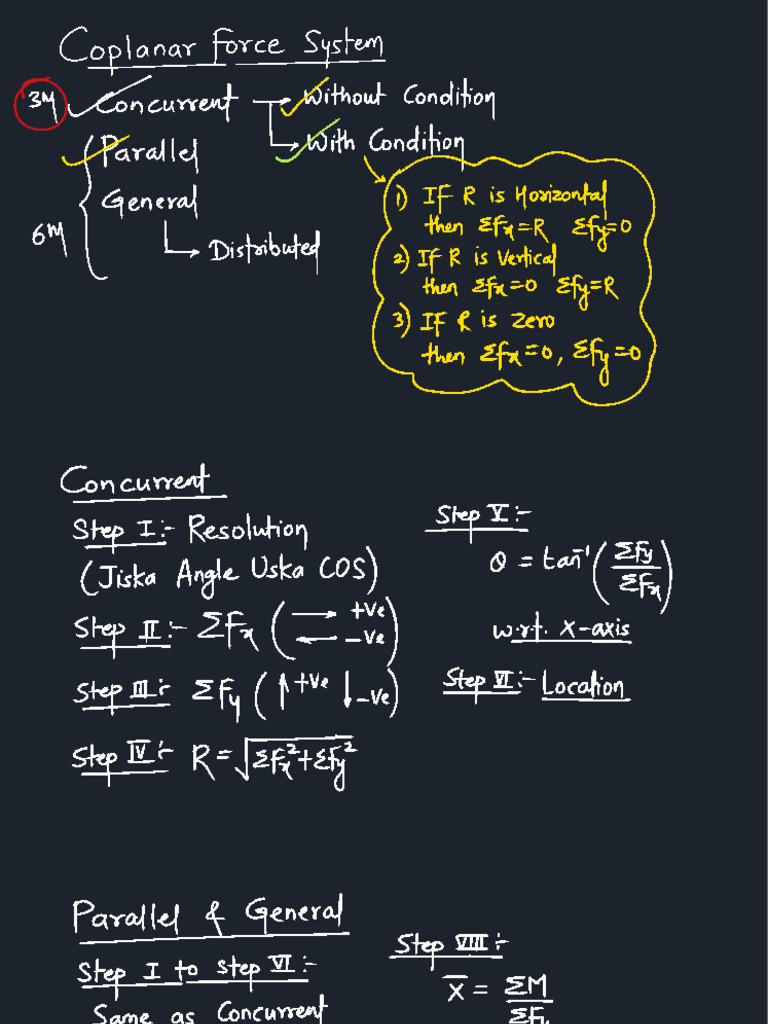 Coplanar Force System
3M Concurrent → Without Condition
→ With Condition
Parallel
General
6M
→ Distributed
1) If R is Horizontal
then Σfx=R Σfy=0
2) If R is Vertical
then Σfx=0 Σfy=R
3) If R is Zero
then Σfx=0, Σfy=0
Concurrent
Step I:- Resolution
(Jiska Angle Uska COS)
Step II:- ΣFx (→ +ve
← -ve)
Step III:- ΣFy (↑+ve ↓-ve)
Step IV:- R=√ΣFx²+ΣFy²
Step V:-
θ = tan⁻¹(Σfy/Σfx)
w.r.t. X-axis
Step VI:- Location
Parallel & General
Step I to Step VI:-
Same as Concurrent
Step VIII:-
x̄ = ΣM